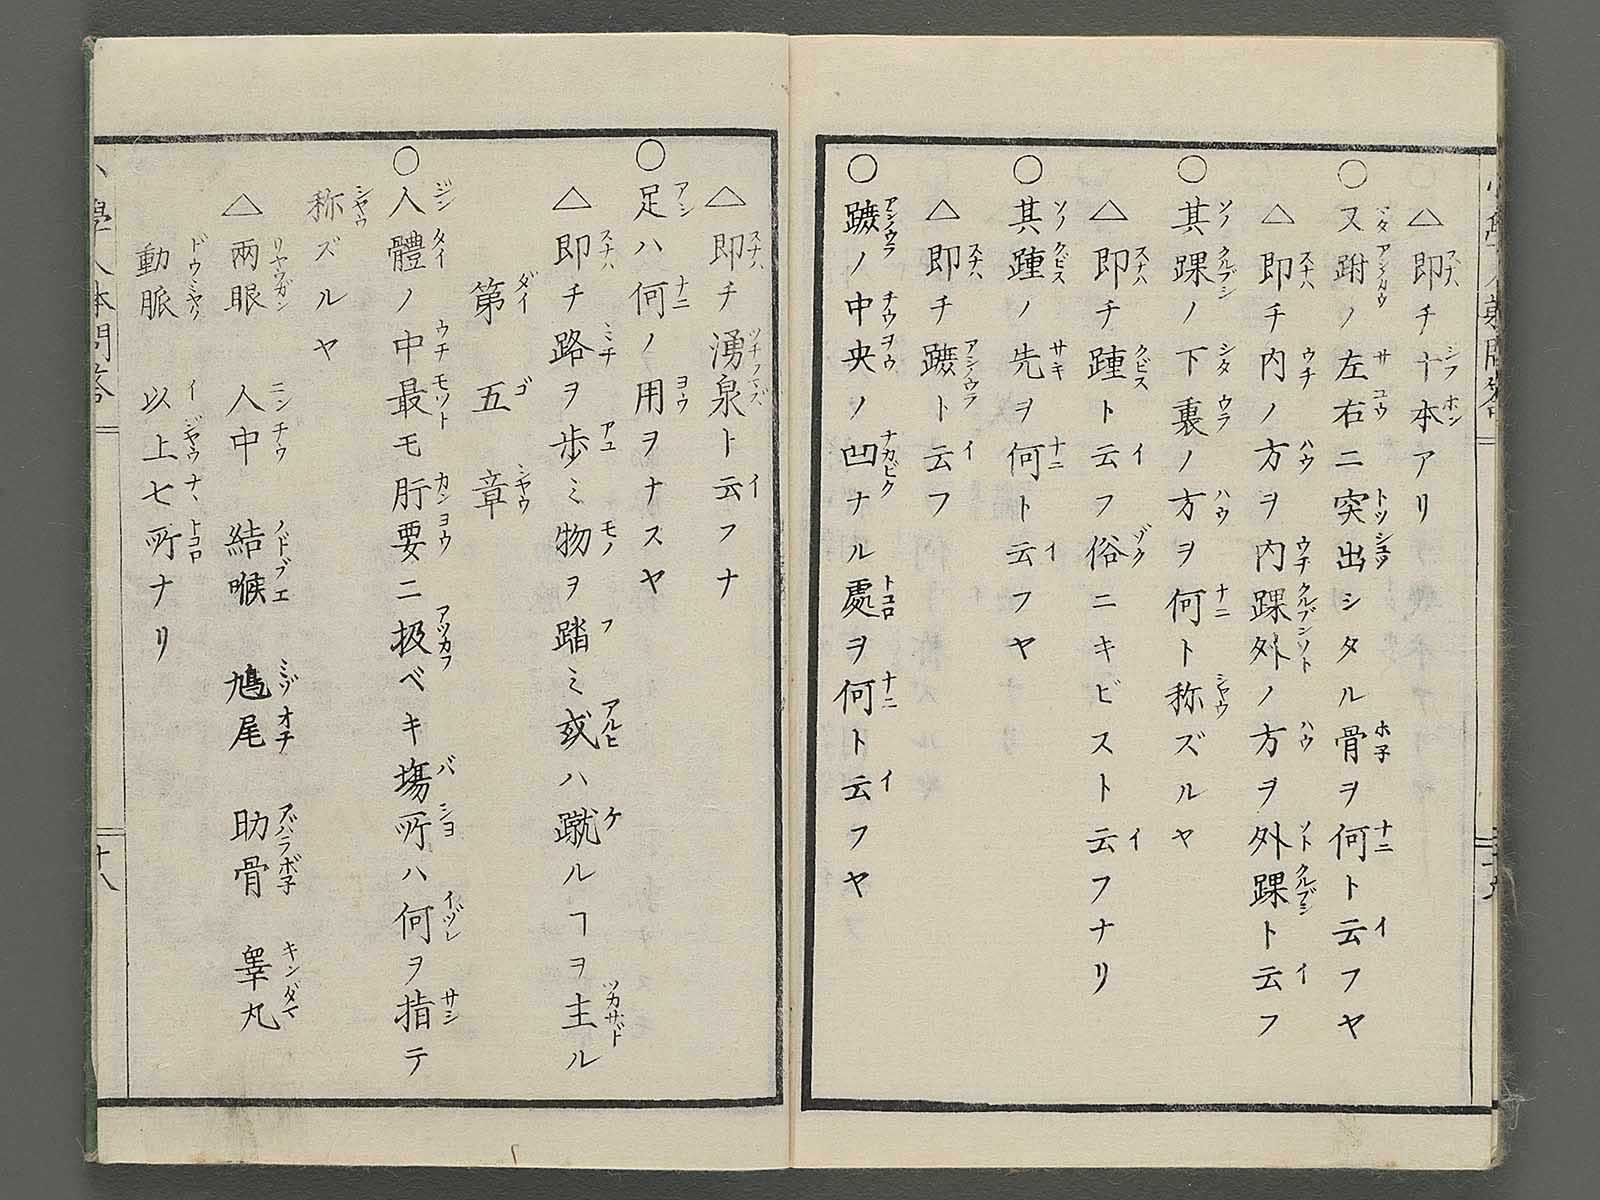 △即チ十本アリ
○又跗ノ左右ニ突出シタル骨ヲ何ト云フヤ
△即チ内ノ方ヲ内踝外ノ方ヲ外踝ト云フ
○其踝ノ下裏ノ方ヲ何ト称ズルヤ
△即チ踵ト云フ俗ニキビスト云フナリ
○其踵ノ先ヲ何ト云フヤ
△即チ蹠ト云フ
○蹠ノ中央ノ凹ナル處ヲ何ト云フヤ
△即チ湧泉ト云フナ
○足ハ何ノ用ヲナスヤ
△即チ路ヲ歩ミ物ヲ踏ミ或ハ蹴ルヿヲ主ル
第五章
○人體ノ中最モ肝要ニ扱ベキ塲所ハ何ヲ指テ
称ズルヤ
△兩眼 人中 結喉 鳩尾 助骨 睾丸
動脈 以上七所ナリ
小學人体問答
十八